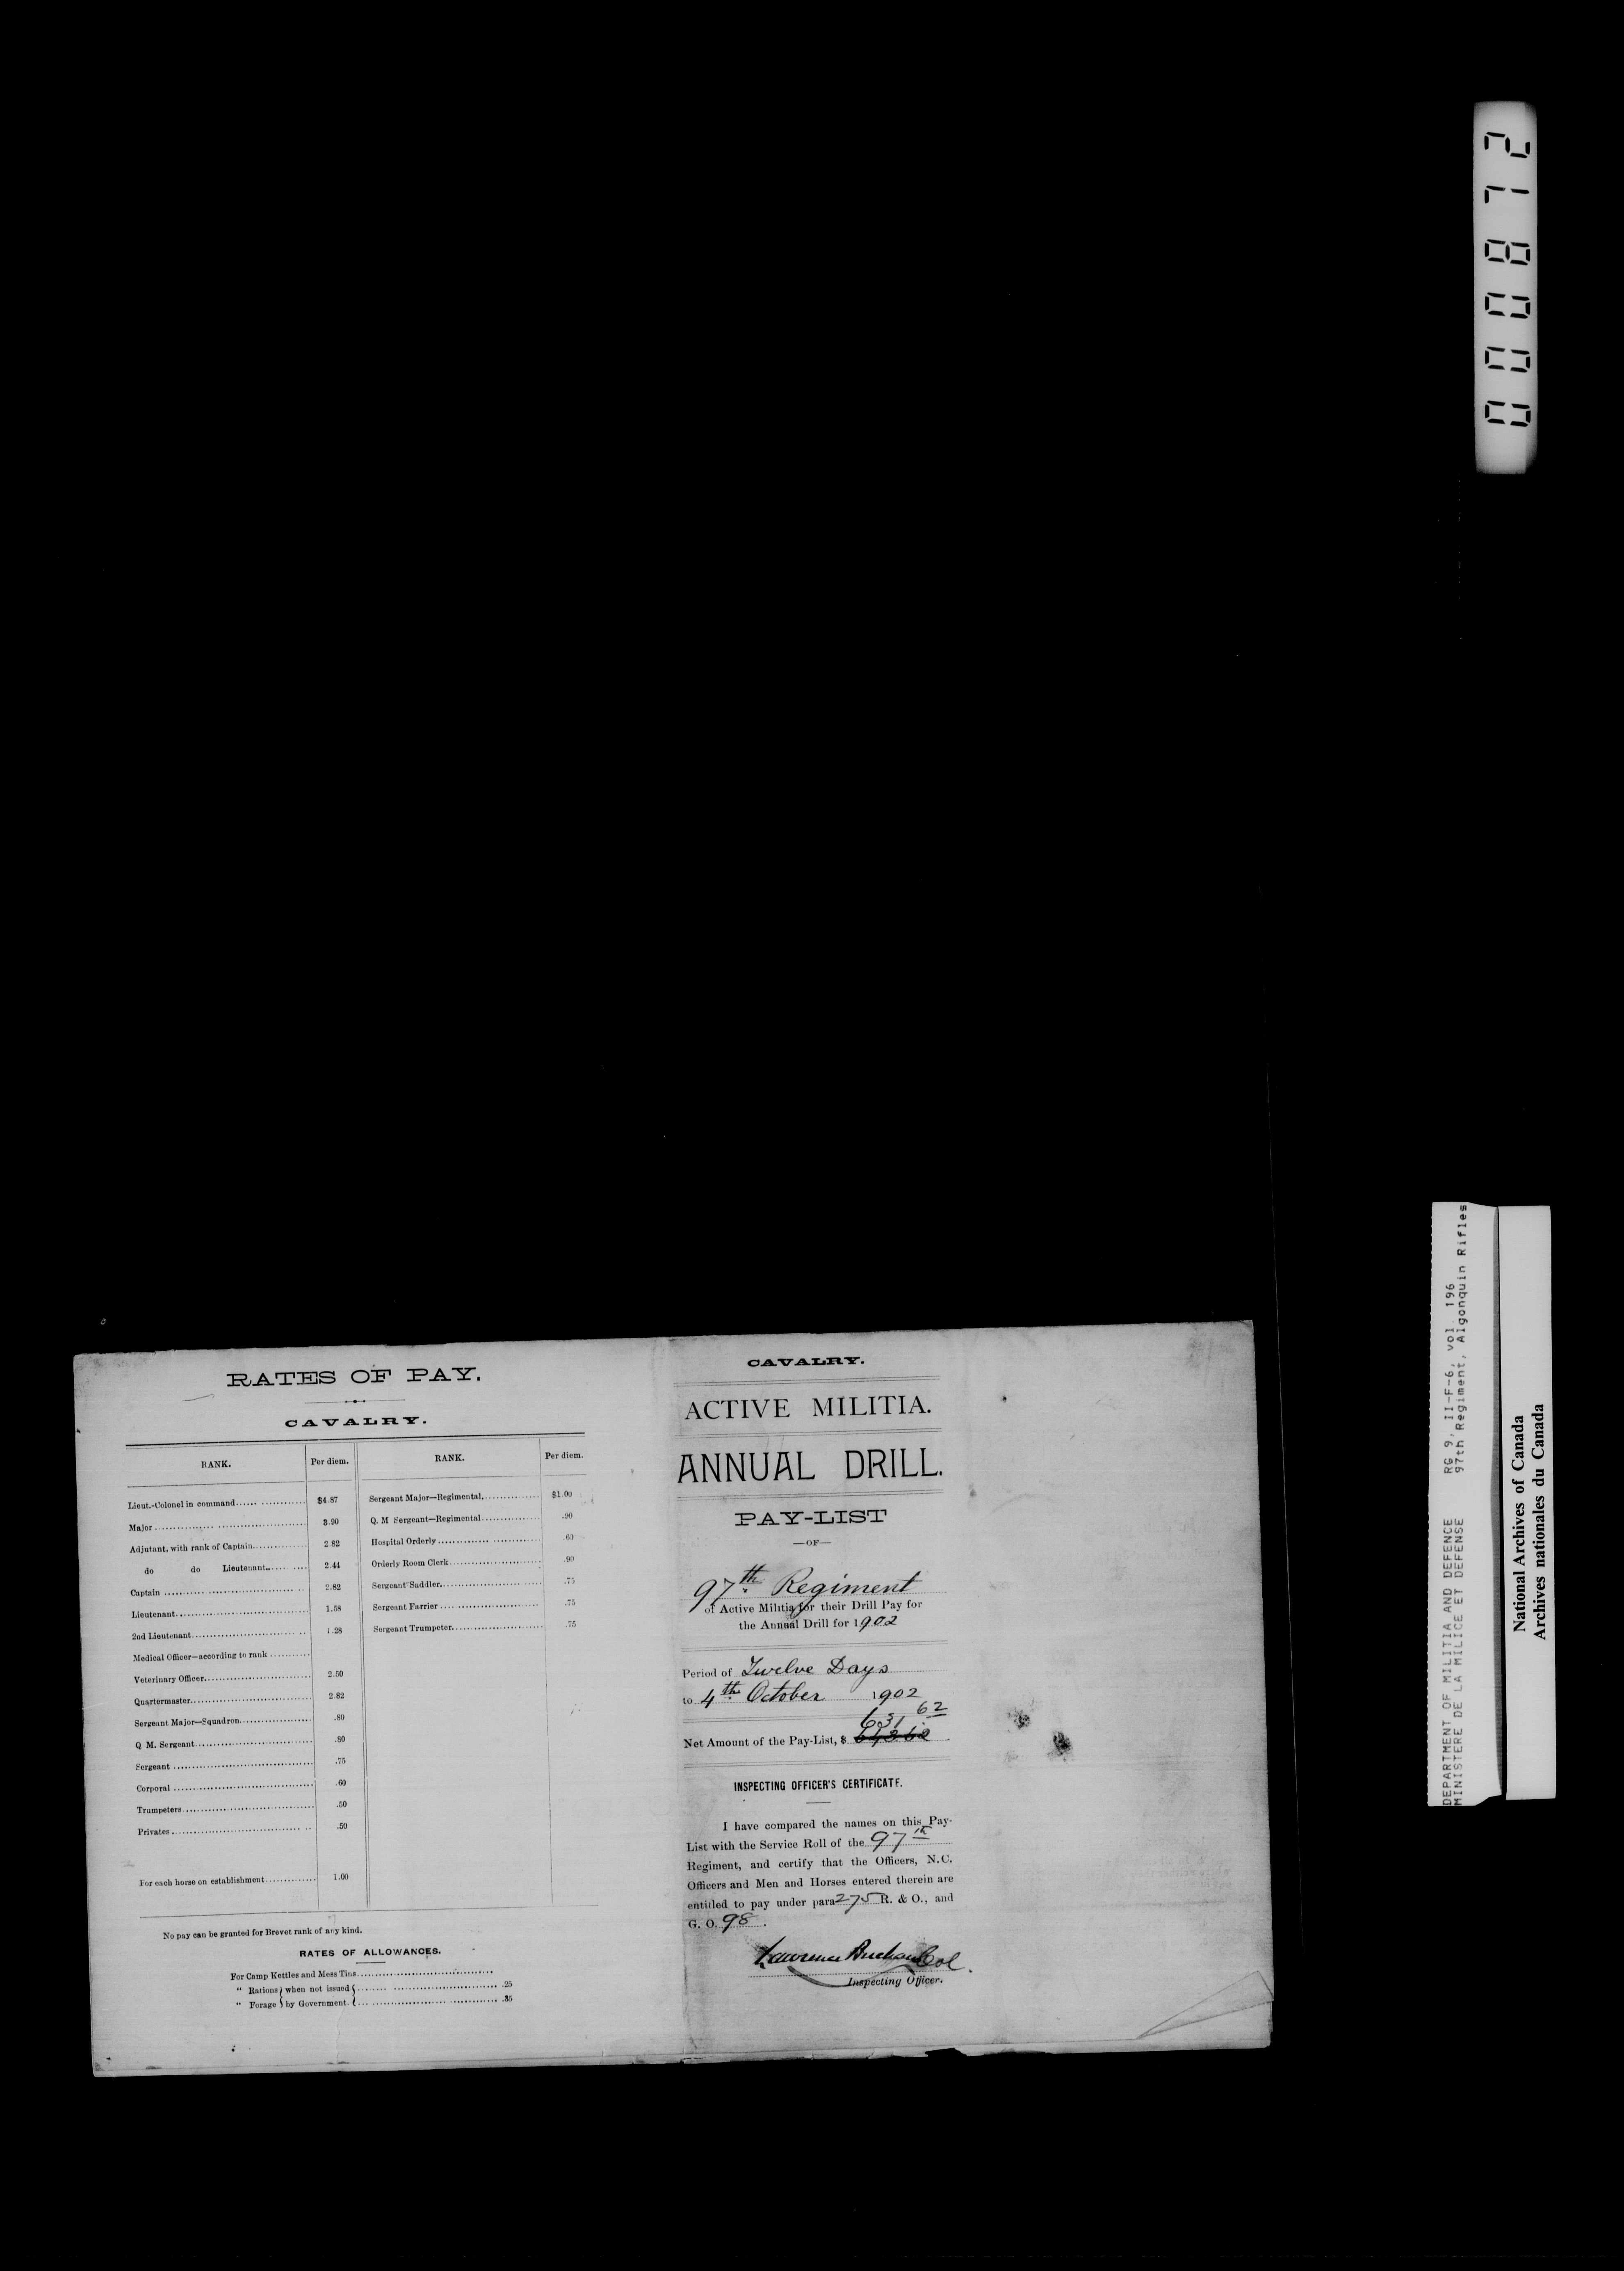 RATES OF PAY.
CAVALRY.
RANK. Per diem. RANK. Per diem.
Lieut.-Colonel in command $4.87 Sergeant Major—Regimental $1.00
Major 3.90 Q. M Sergeant—Regimental .90
Adjutant, with rank of Captain 2.82 Hospital Orderly .60
do do Lieutenant 2.44 Orderly Room Clerk .90
Captain 2.82 Sergeant Saddler .75
Lieutenant 1.58 Sergeant Farrier .75
2nd Lieutenant 1.28 Sergeant Trumpeter .75
Medical Officer—according to rank
Veterinary Officer 2.50
Quartermaster 2.82
Sergeant Major—Squadron .80
Q M. Sergeant .80
Sergeant .75
Corporal .60
Trumpeters .50
Privates .50
For each horse on establishment 1.00
No pay can be granted for Brevet rank of any kind.
RATES OF ALLOWANCES.
For Camp Kettles and Mess Tins
" Rations } when not issued { .25
" Forage } by Government. { .35
CAVALRY.
ACTIVE MILITIA.
ANNUAL DRILL.
PAY-LIST
—OF—
97th Regiment
of Active Militia for their Drill Pay for
the Annual Drill for 1902
Period of Twelve Days
to 4th October 1902
631 62
Net Amount of the Pay-List, $
INSPECTING OFFICER'S CERTIFICATE.
I have compared the names on this Pay-
List with the Service Roll of the 97th
Regiment, and certify that the Officers, N.C.
Officers and Men and Horses entered therein are
entitled to pay under para 275 R. & O., and
G. O. 98.
Lawrence Buchan Col.
Inspecting Officer.
000872
DEPARTMENT OF MILITIA AND DEFENCE RG 9, II-F-6, vol. 196
MINISTERE DE LA MILICE ET DEFENSE 97th Regiment, Algonquin Rifles
National Archives of Canada
Archives nationales du Canada